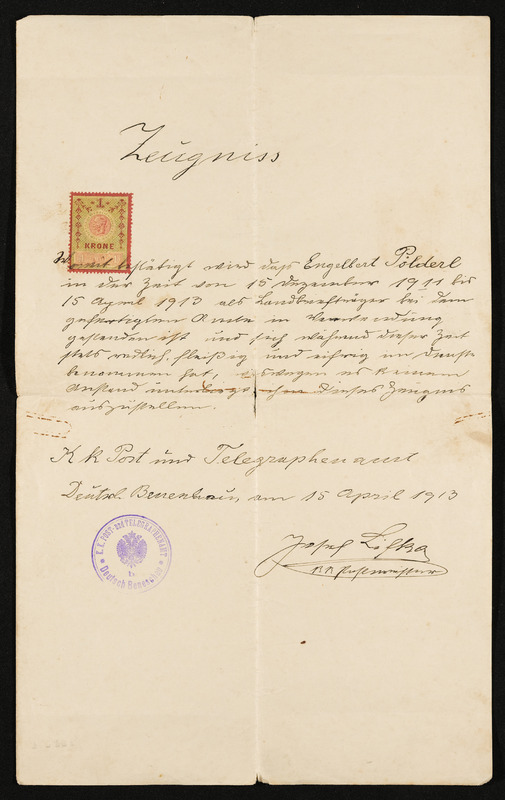 Zeugniss
1
KRONE
Womit bestätigt wird daß Engelbert Pölderl
in der Zeit von 15 Dezember 1911 bis
15 April 1913 als Landbriefträger bei dem
gefertigten Amte in Verwendung
gestanden ist und sich während dieser Zeit
stets redlich, fleißig und eifrig im Dienste
benommen hat, es keinem
Anstand unterliegt dieses Zeugnis
auszustellen.
K k Post und Telegraphenamt
Deutsch Beneschau, am 15 April 1913
K. K. POST- UND TELEGRAPHENAMT
Deutsch Beneschau
Josef Lifka
K K Postmeister